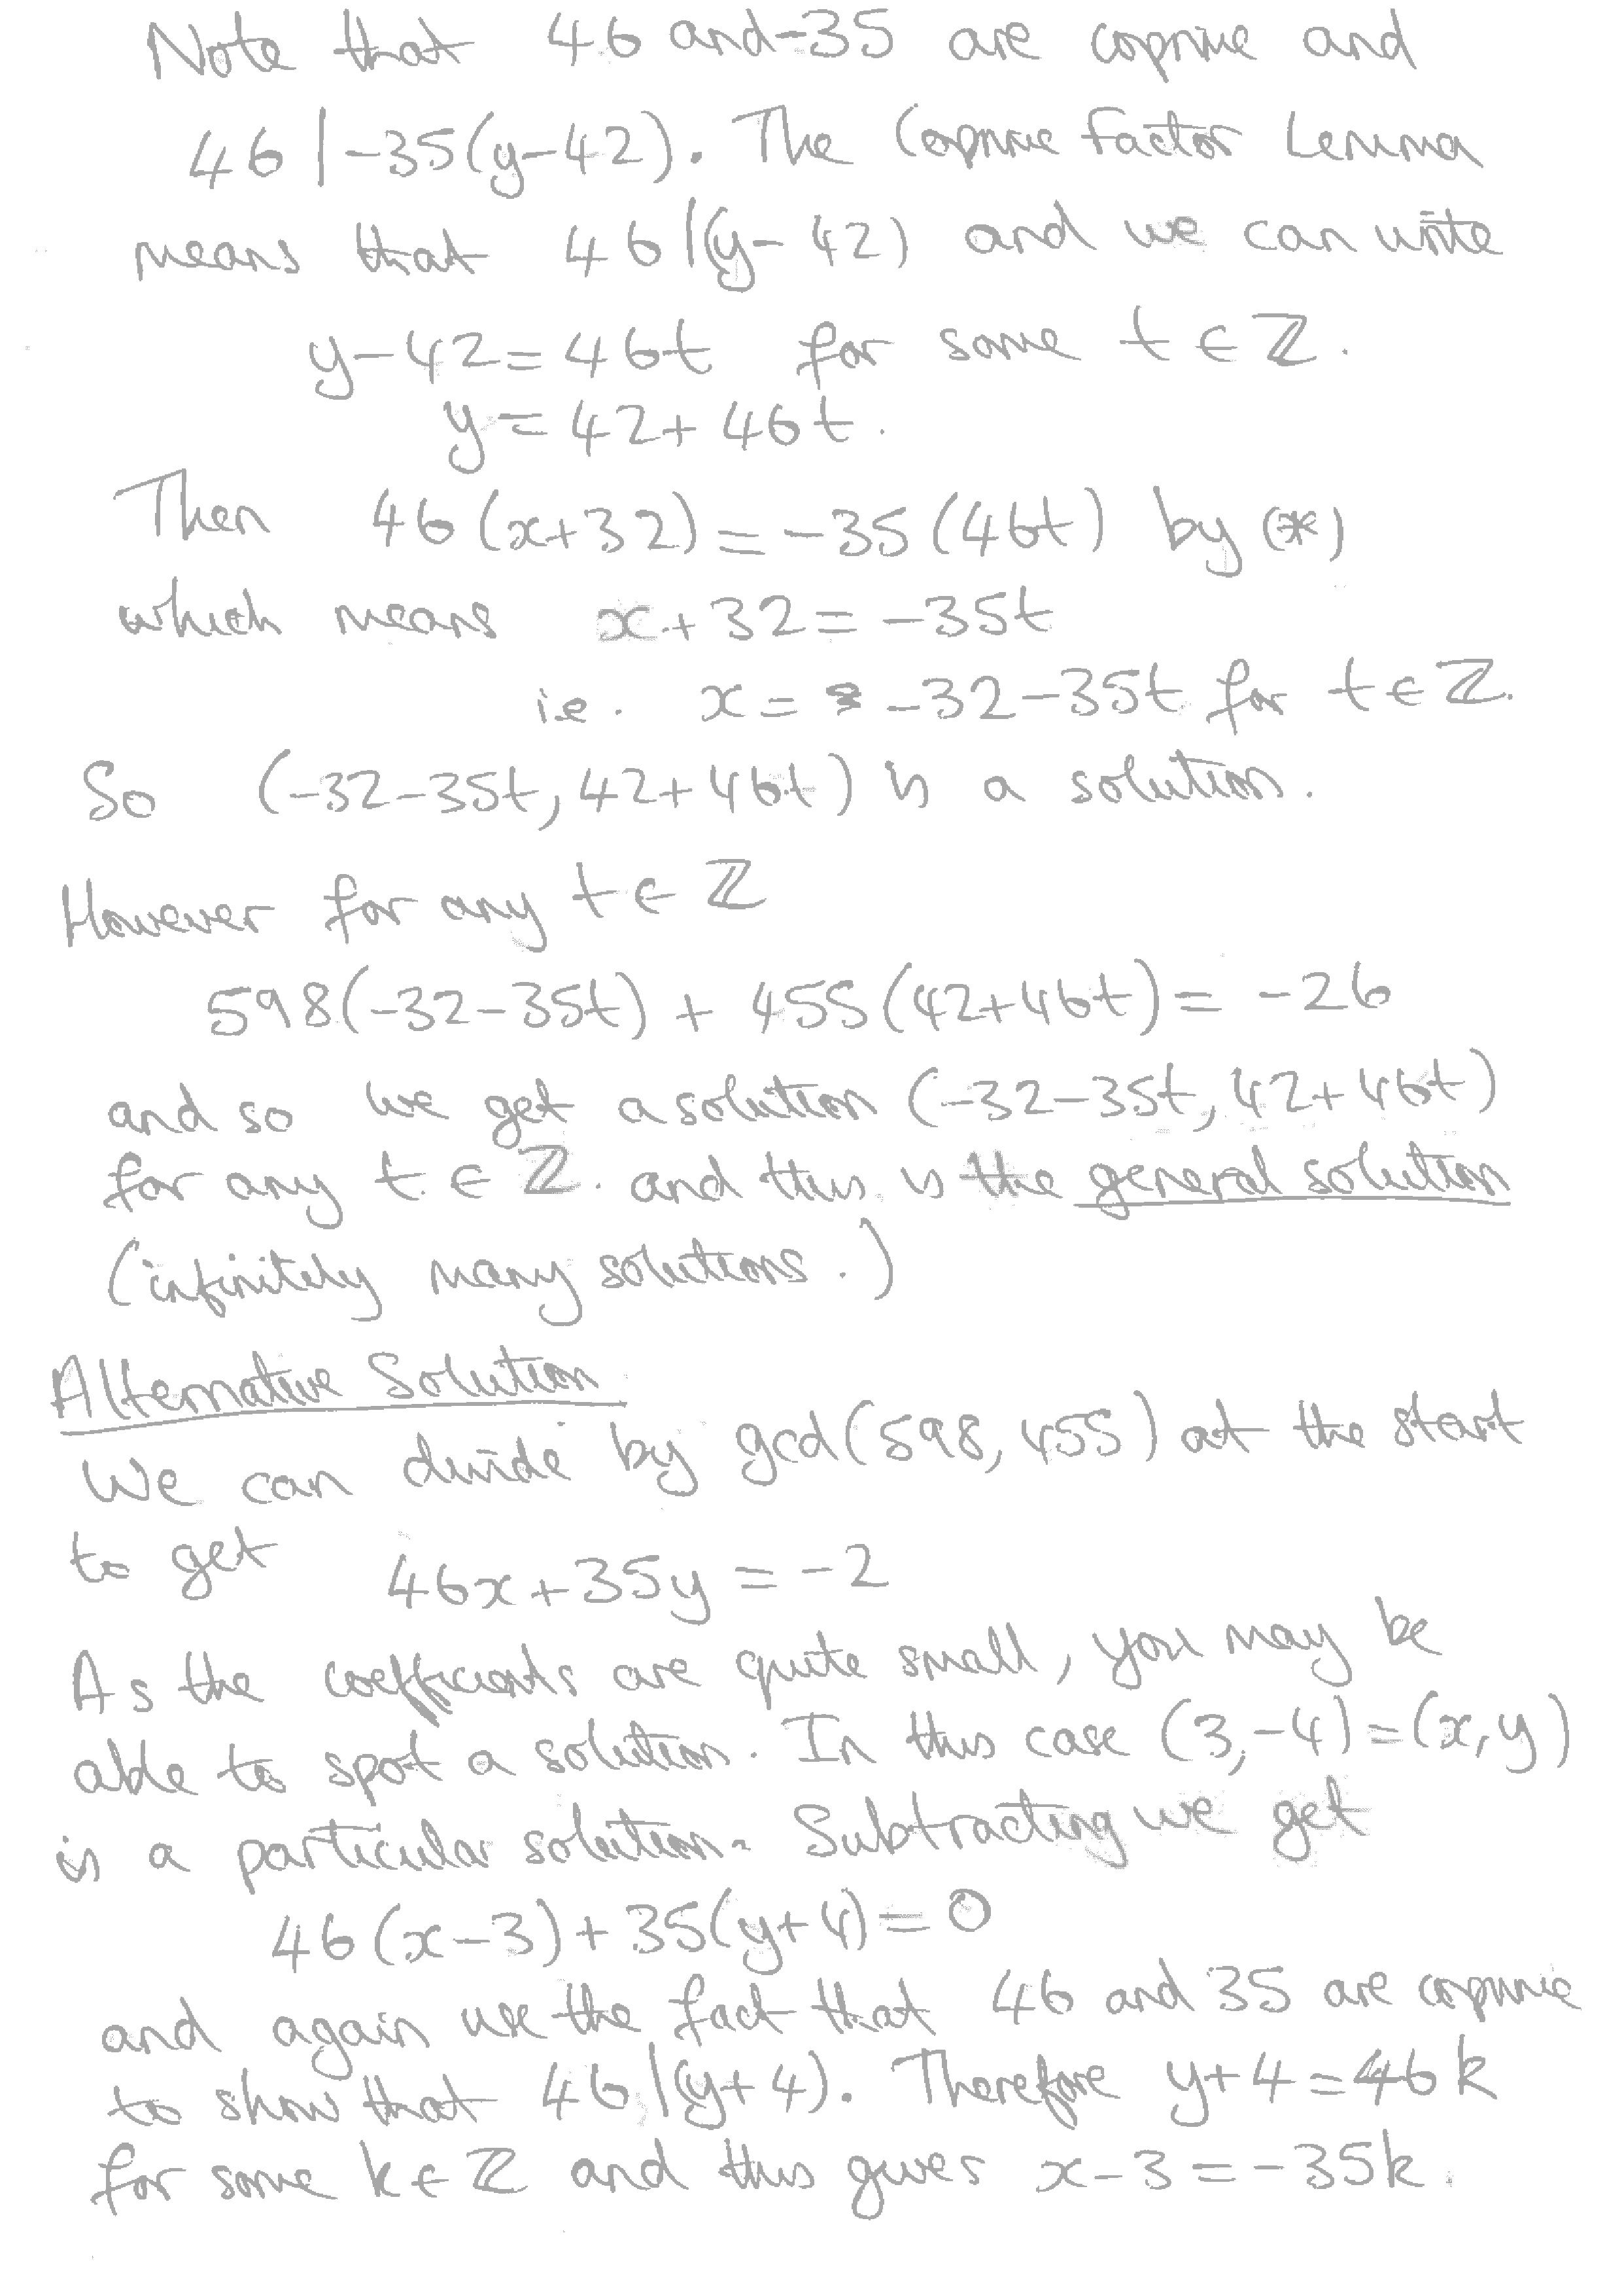 Note that 46 and -35 are coprime and
46 | -35(y-42). The Coprime Factor Lemma
means that 46 | (y-42) and we can write
y-42 = 46t for some t ∈ ℤ.
y = 42 + 46t.
Then 46(x+32) = -35(46t) by (*)
which means x+32 = -35t
i.e. x = -32-35t for t ∈ ℤ.
So (-32-35t, 42+46t) is a solution.
However for any t ∈ ℤ
598(-32-35t) + 455(42+46t) = -26
and so we get a solution (-32-35t, 42+46t)
for any t ∈ ℤ. and this is the general solution
(infinitely many solutions.)
Alternative Solution
We can divide by gcd(598, 455) at the start
to get 46x + 35y = -2
As the coefficients are quite small, you may be
able to spot a solution. In this case (3,-4) = (x, y)
is a particular solution. Subtracting we get
46(x-3) + 35(y+4) = 0
and again use the fact that 46 and 35 are coprime
to show that 46 | (y+4). Therefore y+4 = 46k
for some k ∈ ℤ and this gives x-3 = -35k.